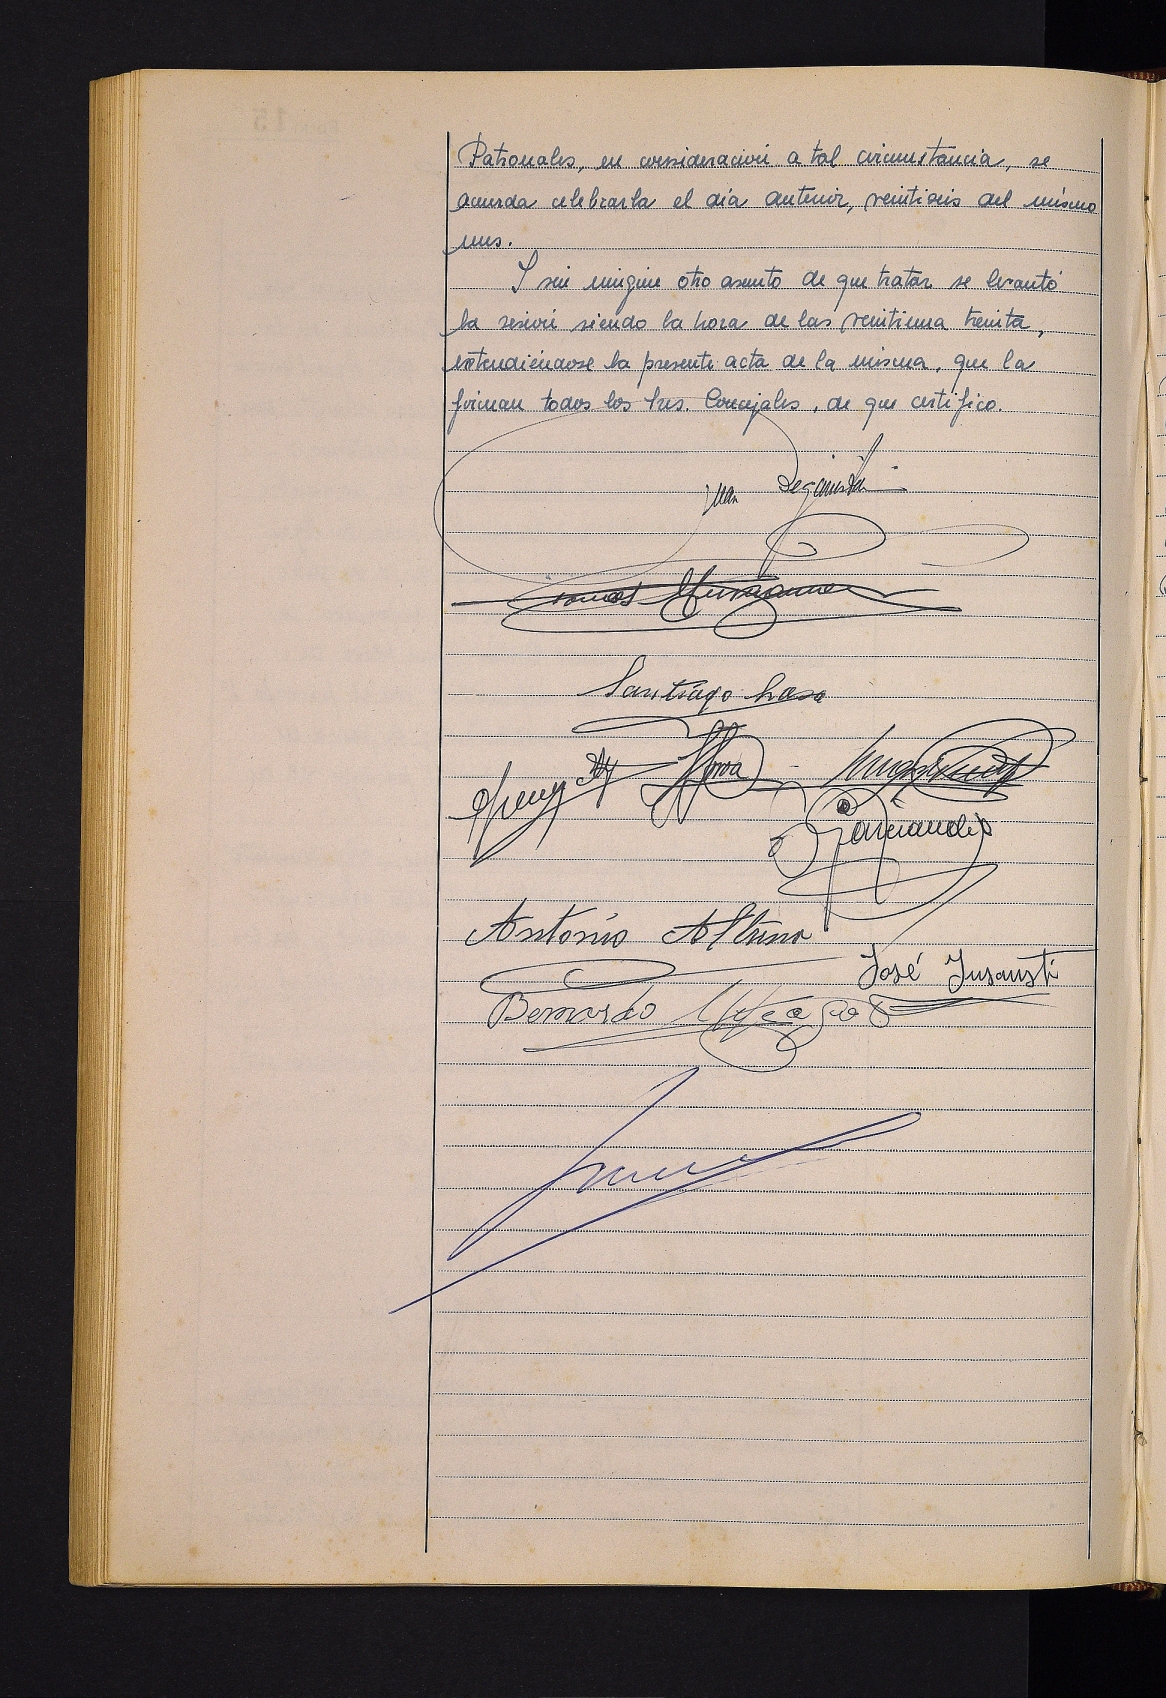 Patronales, en consideración a tal circunstancia, se
acuerda celebrarla el día anterior, veintiseis del mismo
mes.
Y sin ningún otro asunto de que tratar se levantó
la sesión siendo la hora de las veintiuna treinta,
extendiéndose la presente acta de la misma, que la
firman todos los Sres. Concejales, de que certifico.
Juan
Santiago Lasa
Garciandia
Antonio Altuna
José Insausti
Bernardo